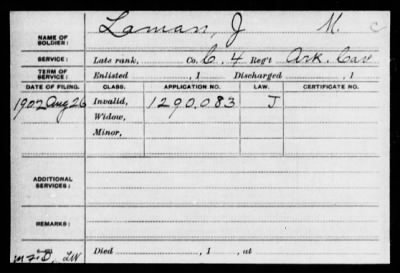 NAME OF SOLDIER: Laman, J K. C
SERVICE: Late rank, Co. C, 4 Reg't Ark. Cav
TERM OF SERVICE: Enlisted , 1 Discharged , 1
DATE OF FILING. CLASS. APPLICATION NO. LAW. CERTIFICATE NO.
1902 Aug 26 Invalid, 1290.083 J
Widow,
Minor,
ADDITIONAL SERVICES:
REMARKS:
Died , 1 , at